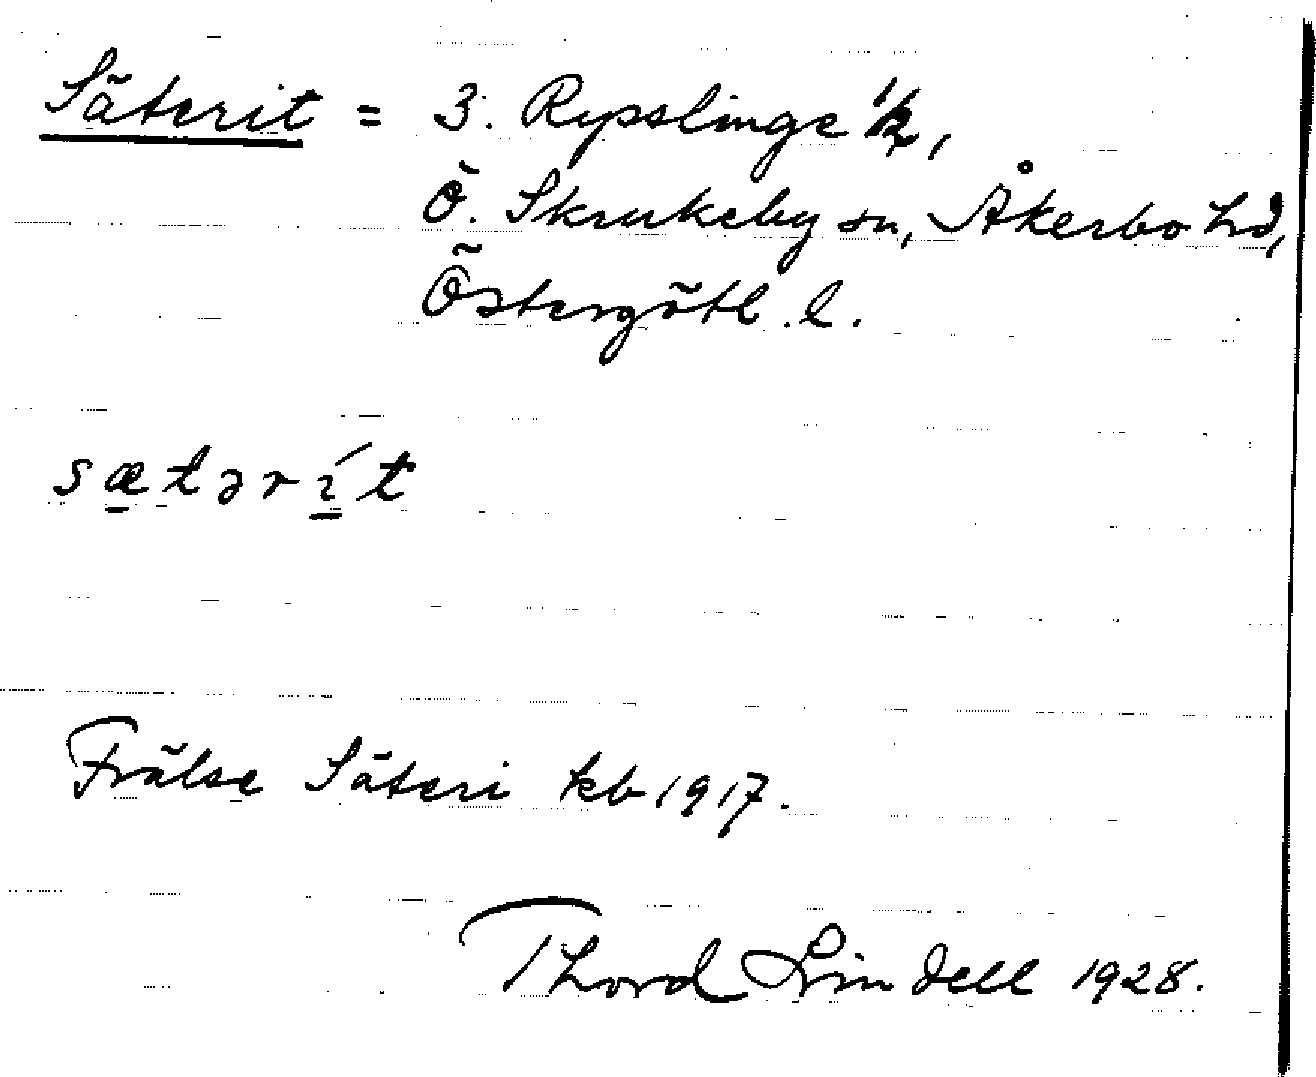 Säterit = 3. Rysslinge 1/2,
Ö. Skrukeby sn, Åkerbo hd,
Östergötl. l.
sætərı́t
Frälse Säteri kb 1917.
Thord Lindell 1928.